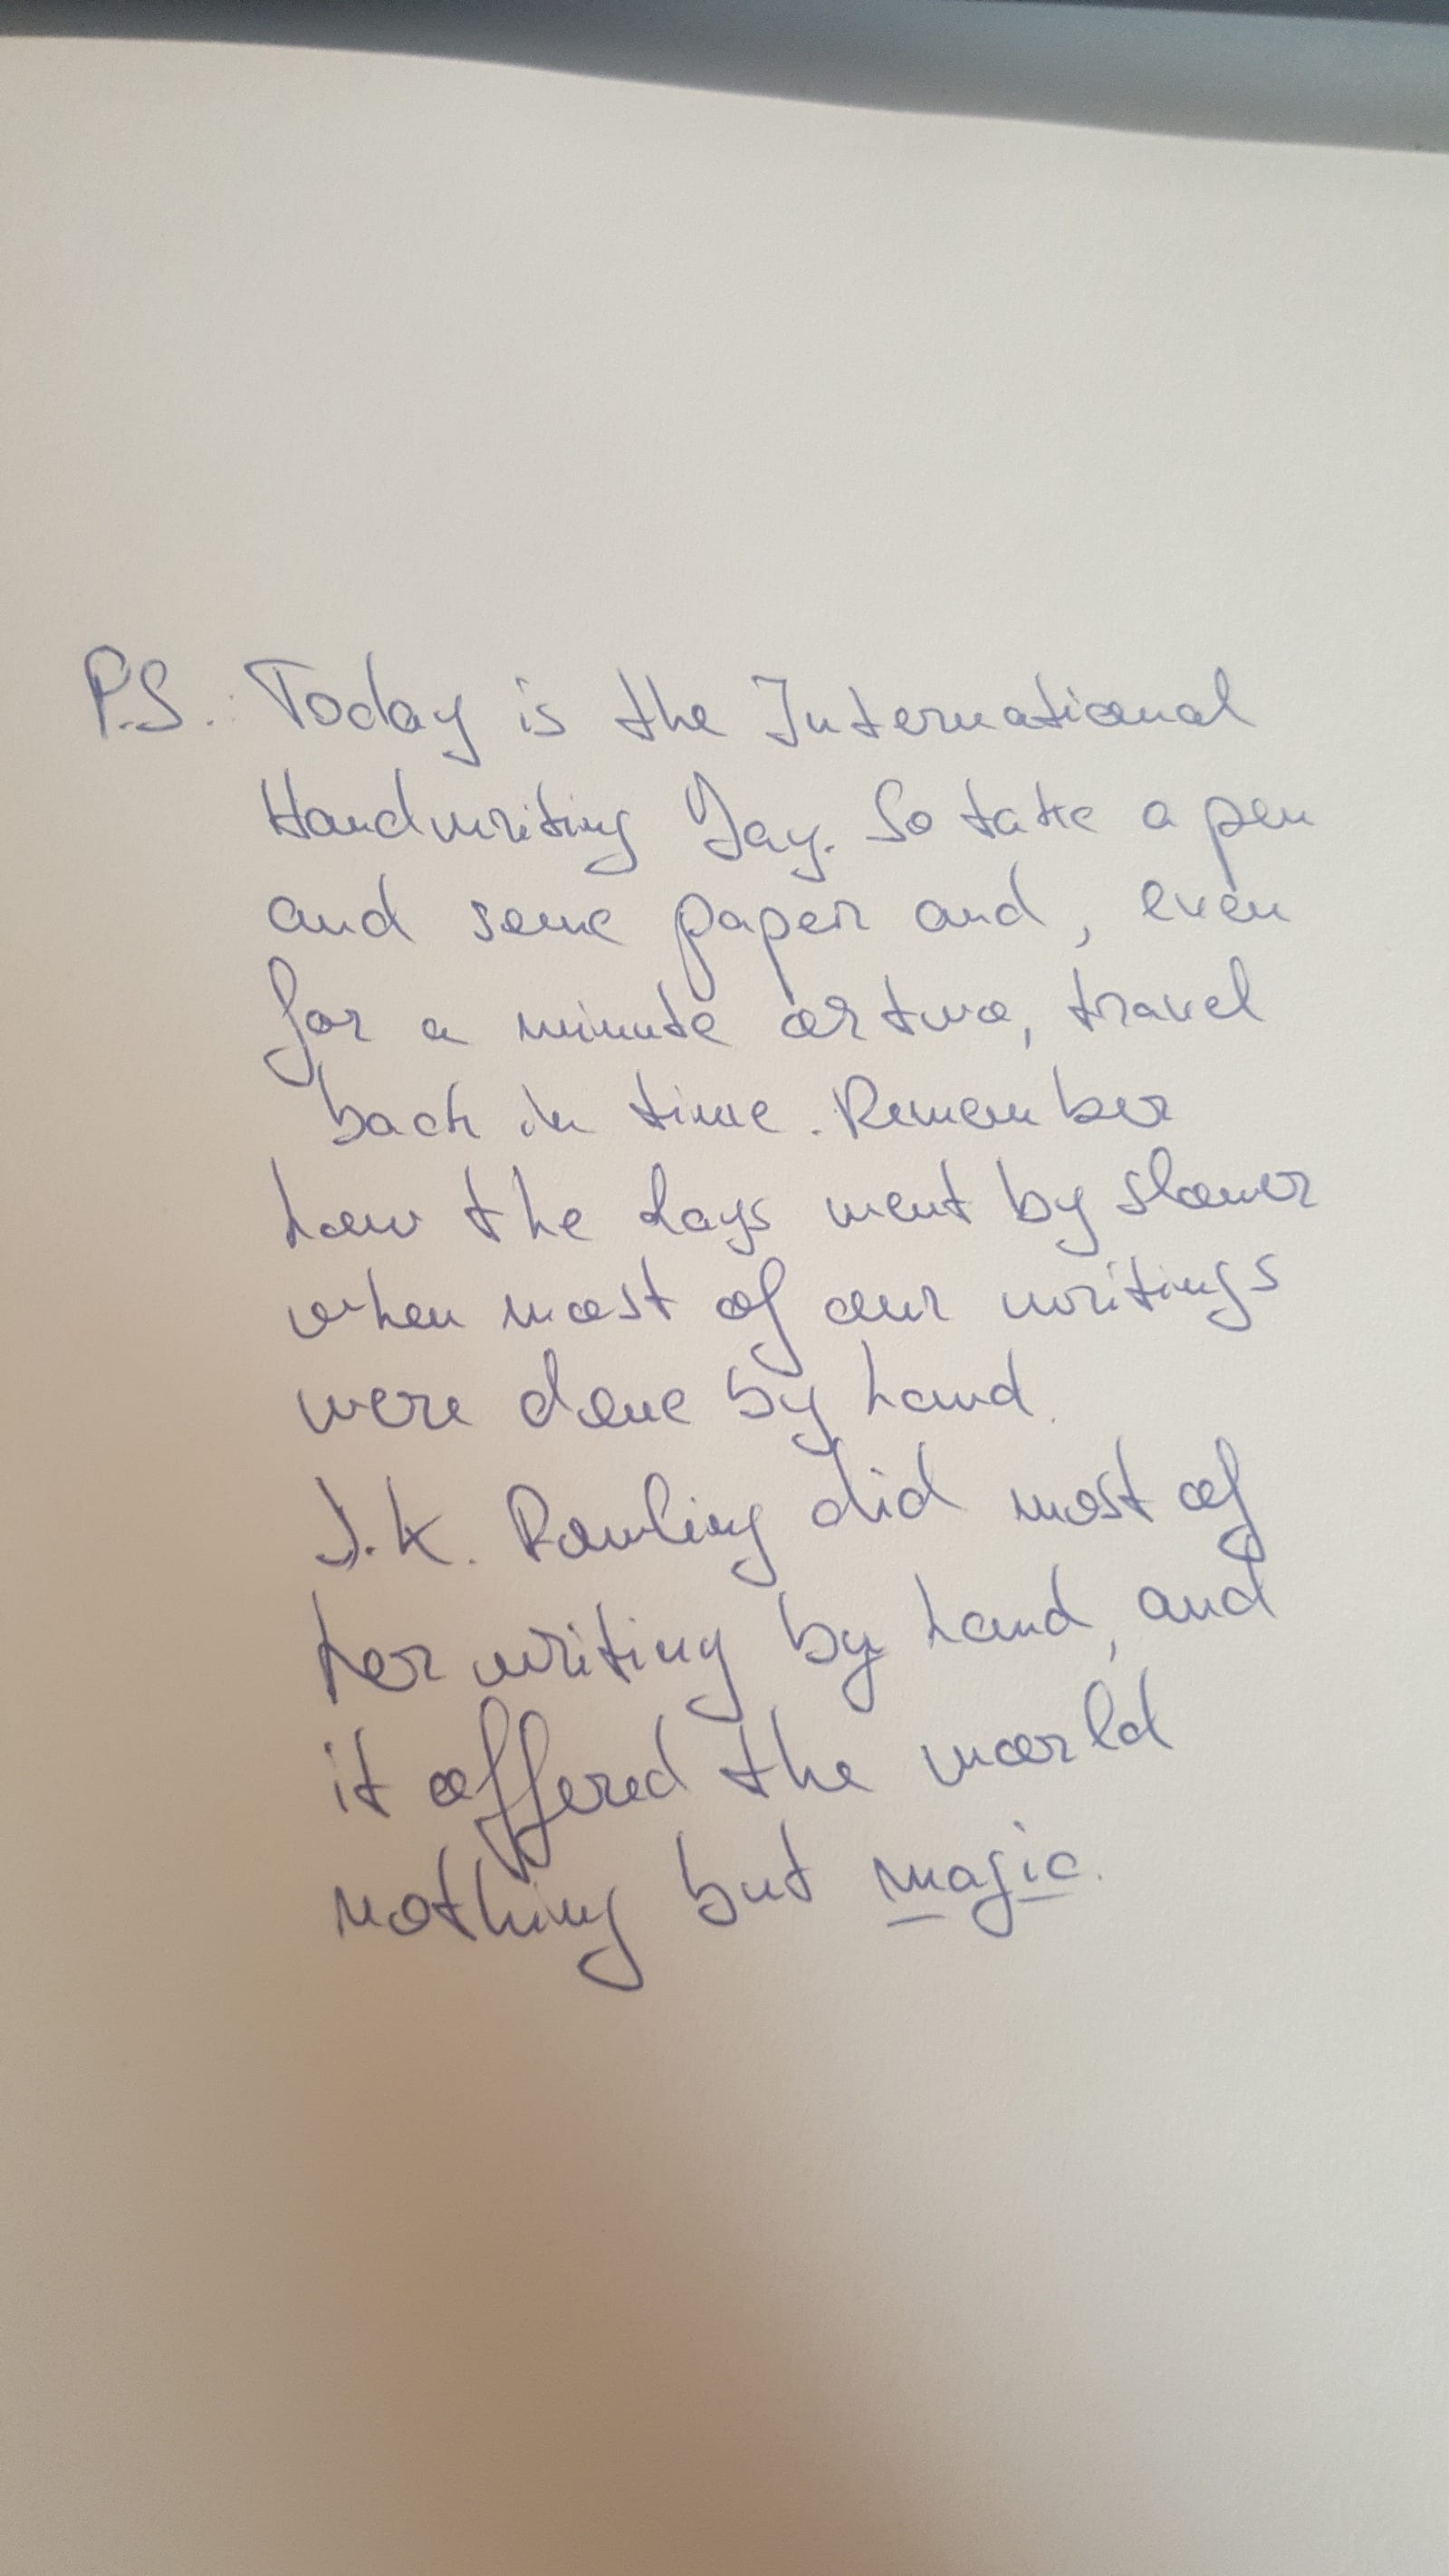 P.S.: Today is the International
Handwriting Day. So take a pen
and some paper and, even
for a minute or two, travel
back in time. Remember
how the days went by slower
when most of our writings
were done by hand.
J.K. Rowling did most of
her writing by hand, and
it offered the world
nothing but magic.